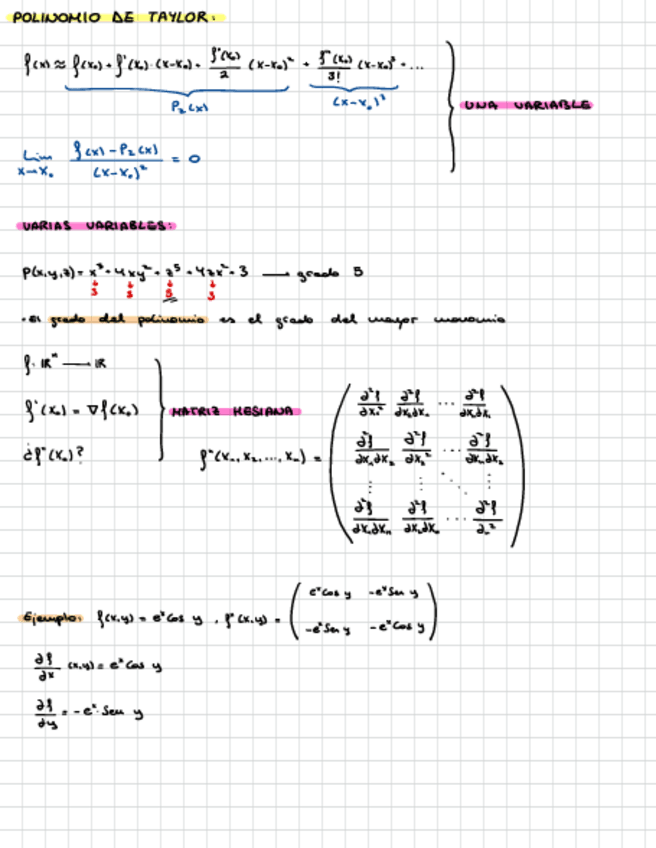 POLINOMIO DE TAYLOR:
f(x) ≈ f(x₀) + f'(x₀)·(x-x₀) + f''(x₀)/2 (x-x₀)² + f'''(x₀)/3! (x-x₀)³ + ...
P₂(x) (x-x₀)³
UNA VARIABLE
Lim x→x₀ (f(x) - P₂(x))/(x-x₀)² = 0
VARIAS VARIABLES:
P(x,y,z) = x³ + 4xy² + z⁵ + 4zx² + 3 → grado 5
3 3 5 3
· El grado del polinomio es el grado del mayor monomio
f: ℝⁿ → ℝ
f'(x₀) = ∇f(x₀) MATRIZ HESIANA
¿f''(x₀)? f''(x₁, x₂, ..., xₙ) =
Ejemplo: f(x,y) = eˣ cos y , f''(x,y) =
eˣ cos y -eˣ sen y
-eˣ sen y -eˣ cos y
∂f/∂x (x,y) = eˣ cos y
∂f/∂y = -eˣ · sen y